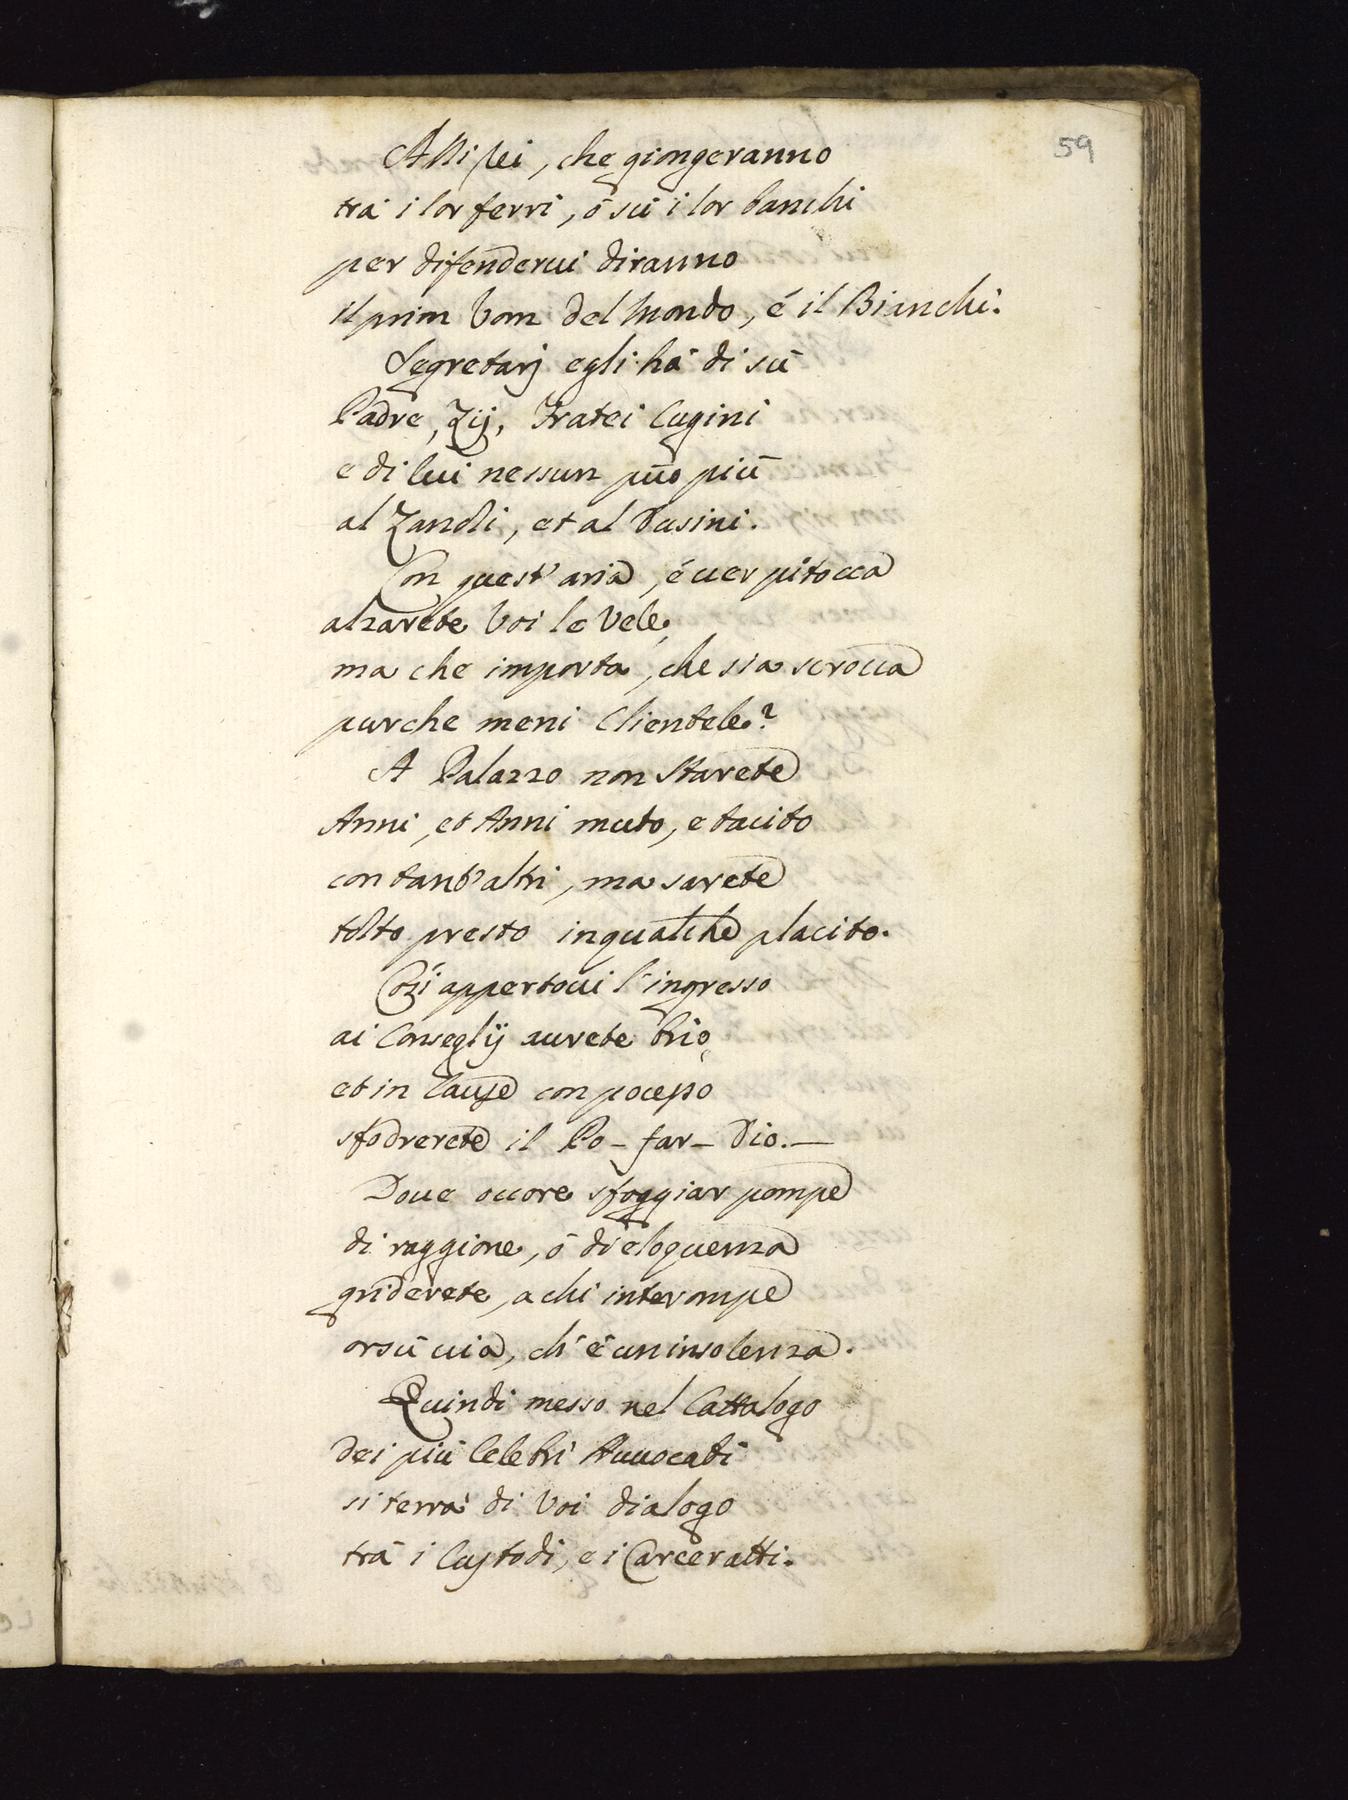 59
Alli rei, che giongeranno
trà i lor ferri, ò sù i lor banchi
per difenderui diranno
il prim Vom del Mondo, é il Bianchi.
Segretarj egli hà di sù
Padre, Zij, Fratei Cugini
e di lui nessun può più
al Zanoli, et al Dusini.
Con quest'aria, é ver pitocca
alzarete Voi le Vele,
ma che importa, che sia scrocca
purche meni Clientele?
A Palazzo non starete
Anni, et Anni muto, e tacito
con tant'altri, ma sarete
tolto presto in qualche placito.
Cosi appertoui l'ingresso
ai Conseglij aurete brio,
et in Cause con pocesso
sfodrerete il Po - far - Dio. —
Doue occore sfoggiar pompe
di raggione, ò di eloquenza
griderete, a chi interompe
orsù uia, ch'è un insolenza.
Quindi messo nel Cattalogo
dei più Celebri Auuocati
si terrà di Voi dialogo
trà i Custodi, e i Carceratti.